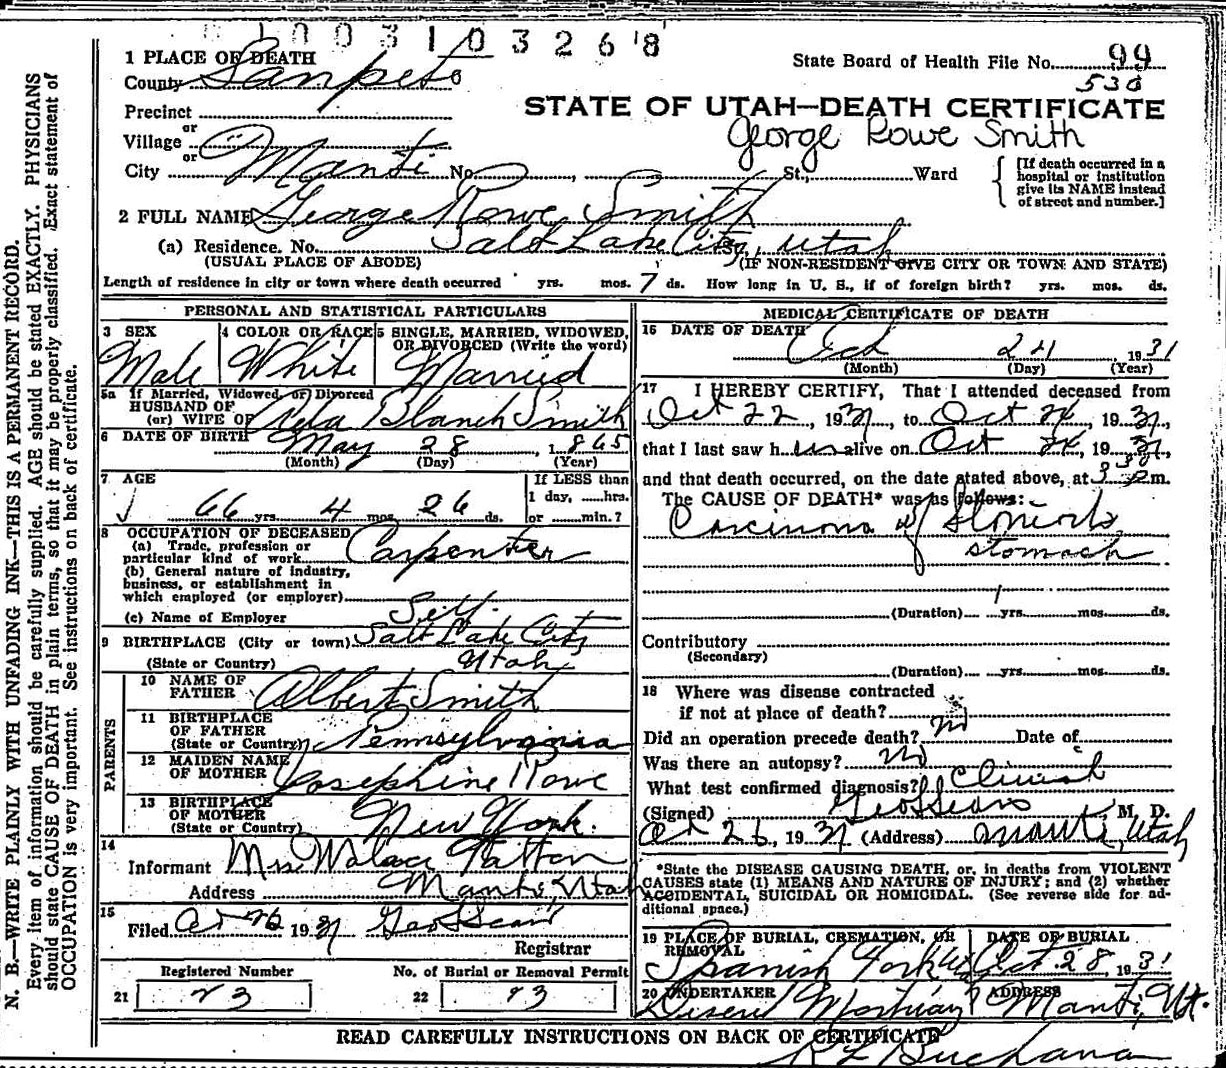 0100310 3268
1 PLACE OF DEATH
State Board of Health File No. 99
County Sanpete
530
Precinct
STATE OF UTAH—DEATH CERTIFICATE
or
Village
George Rowe Smith
or
City Manti No. St., Ward
[If death occurred in a hospital or institution give its NAME instead of street and number.]
2 FULL NAME George Rowe Smith
(a) Residence. No. Salt Lake City, Utah
(USUAL PLACE OF ABODE) (IF NON-RESIDENT GIVE CITY OR TOWN AND STATE)
Length of residence in city or town where death occurred yrs. mos. 7 ds. How long in U. S., if of foreign birth? yrs. mos. ds.
PERSONAL AND STATISTICAL PARTICULARS
3 SEX
Male
4 COLOR OR RACE
White
5 SINGLE, MARRIED, WIDOWED, OR DIVORCED (Write the word)
Married
5a If Married, Widowed, or Divorced
HUSBAND OF
(or) WIFE OF Blanch Smith
6 DATE OF BIRTH May 28, 1865
(Month) (Day) (Year)
7 AGE
If LESS than
1 day, ......hrs.
66 yrs. 4 mos. 26 ds. or ......min.?
8 OCCUPATION OF DECEASED
(a) Trade, profession or
particular kind of work Carpenter
(b) General nature of industry,
business, or establishment in
which employed (or employer)
(c) Name of Employer Self.
9 BIRTHPLACE (City or town) Salt Lake City
(State or Country) Utah
PARENTS
10 NAME OF
FATHER Albert Smith
11 BIRTHPLACE
OF FATHER
(State or Country) Pennsylvania
12 MAIDEN NAME
OF MOTHER Josephine Rowe
13 BIRTHPLACE
OF MOTHER
(State or Country) New York.
14
Informant Mrs Walace Patten
Address Manti, Utah
15
Filed Oct 26 1931 Geo L Sears
Registrar
Registered Number No. of Burial or Removal Permit
21 23 22 93
MEDICAL CERTIFICATE OF DEATH
16 DATE OF DEATH
Oct 24, 1931
(Month) (Day) (Year)
17 I HEREBY CERTIFY, That I attended deceased from
Oct 22, 1931, to Oct 24, 1931,
that I last saw him alive on Oct 24, 1931,
and that death occurred, on the date stated above, at 3 30 p.m.
The CAUSE OF DEATH* was as follows:
Carcinoma of Stomach
stomach
(Duration) 1 yrs. mos. ds.
Contributory
(Secondary)
(Duration) yrs. mos. ds.
18 Where was disease contracted
if not at place of death?
Did an operation precede death? no Date of
Was there an autopsy? no
What test confirmed diagnosis? Clinical
(Signed) Geo L Sears M. D.
Oct 26, 1931 (Address) Manti, Utah
*State the DISEASE CAUSING DEATH, or, in deaths from VIOLENT
CAUSES state (1) MEANS AND NATURE OF INJURY; and (2) whether
ACCIDENTAL, SUICIDAL OR HOMICIDAL. (See reverse side for ad-
ditional space.)
19 PLACE OF BURIAL, CREMATION, OR REMOVAL
Spanish Fork Ut
DATE OF BURIAL
Oct. 28, 1931
20 UNDERTAKER
Deseret Mortuary
ADDRESS
Manti, Ut.
READ CAREFULLY INSTRUCTIONS ON BACK OF CERTIFICATE
Buchanan
N. B.—WRITE PLAINLY WITH UNFADING INK—THIS IS A PERMANENT RECORD.
Every item of information should be carefully supplied. AGE should be stated EXACTLY. PHYSICIANS
should state CAUSE OF DEATH in plain terms, so that it may be properly classified. Exact statement of
OCCUPATION is very important. See instructions on back of certificate.